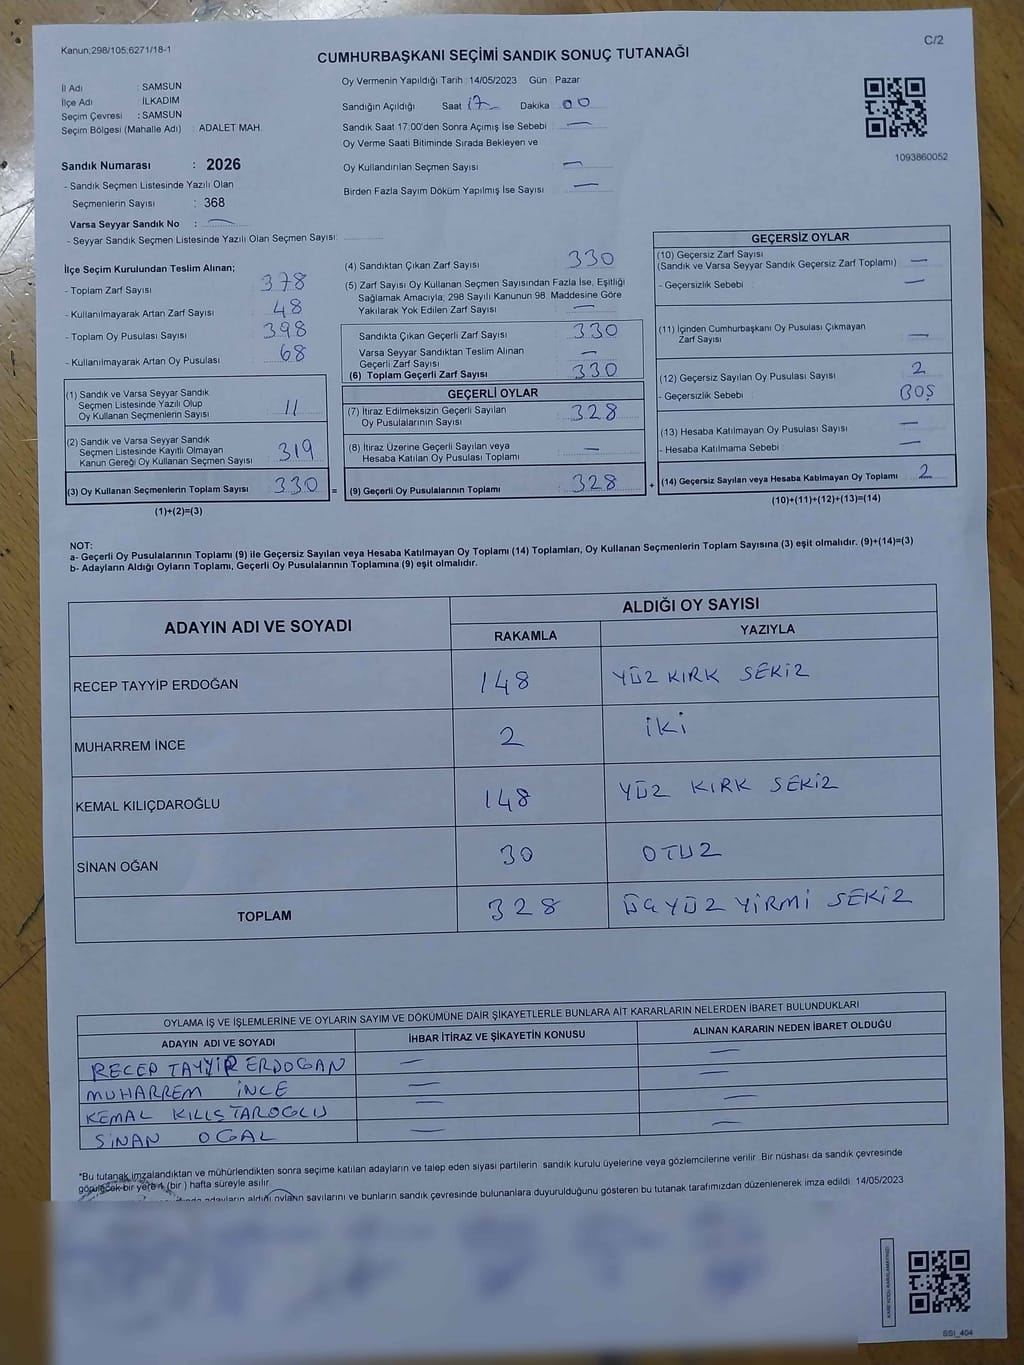 Kanun:298/105;6271/18-1
C/2
CUMHURBAŞKANI SEÇİMİ SANDIK SONUÇ TUTANAĞI
İl Adı : SAMSUN
İlçe Adı : İLKADIM
Seçim Çevresi : SAMSUN
Seçim Bölgesi (Mahalle Adı) : ADALET MAH.
Sandık Numarası : 2026
- Sandık Seçmen Listesinde Yazılı Olan
Seçmenlerin Sayısı : 368
Varsa Seyyar Sandık No : —
- Seyyar Sandık Seçmen Listesinde Yazılı Olan Seçmen Sayısı:
Oy Vermenin Yapıldığı Tarih :14/05/2023 Gün : Pazar
Sandığın Açıldığı Saat 17 Dakika 00
Sandık Saat 17:00'den Sonra Açımış İse Sebebi —
Oy Verme Saati Bitiminde Sırada Bekleyen ve
Oy Kullandırılan Seçmen Sayısı —
Birden Fazla Sayım Döküm Yapılmış İse Sayısı —
1093860052
İlçe Seçim Kurulundan Teslim Alınan;
- Toplam Zarf Sayısı 378
- Kullanılmayarak Artan Zarf Sayısı 48
- Toplam Oy Pusulası Sayısı 398
- Kullanılmayarak Artan Oy Pusulası 68
(1) Sandık ve Varsa Seyyar Sandık
Seçmen Listesinde Yazılı Olup
Oy Kullanan Seçmenlerin Sayısı 11
(2) Sandık ve Varsa Seyyar Sandık
Seçmen Listesinde Kayıtlı Olmayan
Kanun Gereği Oy Kullanan Seçmen Sayısı 319
(3) Oy Kullanan Seçmenlerin Toplam Sayısı 330 =
(1)+(2)=(3)
(4) Sandıktan Çıkan Zarf Sayısı 330
(5) Zarf Sayısı Oy Kullanan Seçmen Sayısından Fazla İse, Eşitliği
Sağlamak Amacıyla; 298 Sayılı Kanunun 98. Maddesine Göre
Yakılarak Yok Edilen Zarf Sayısı —
Sandıkta Çıkan Geçerli Zarf Sayısı 330
Varsa Seyyar Sandıktan Teslim Alınan
Geçerli Zarf Sayısı —
(6) Toplam Geçerli Zarf Sayısı 330
GEÇERLİ OYLAR
(7) İtiraz Edilmeksizin Geçerli Sayılan
Oy Pusulalarının Sayısı 328
(8) İtiraz Üzerine Geçerli Sayılan veya
Hesaba Katılan Oy Pusulası Toplamı —
(9) Geçerli Oy Pusulalarının Toplamı 328 +
GEÇERSİZ OYLAR
(10) Geçersiz Zarf Sayısı
(Sandık ve Varsa Seyyar Sandık Geçersiz Zarf Toplamı) —
- Geçersizlik Sebebi —
(11) İçinden Cumhurbaşkanı Oy Pusulası Çıkmayan
Zarf Sayısı —
(12) Geçersiz Sayılan Oy Pusulası Sayısı 2
- Geçersizlik Sebebi BOŞ
(13) Hesaba Katılmayan Oy Pusulası Sayısı —
- Hesaba Katılmama Sebebi —
(14) Geçersiz Sayılan veya Hesaba Katılmayan Oy Toplamı 2
(10)+(11)+(12)+(13)=(14)
NOT:
a- Geçerli Oy Pusulalarının Toplamı (9) ile Geçersiz Sayılan veya Hesaba Katılmayan Oy Toplamı (14) Toplamları, Oy Kullanan Seçmenlerin Toplam Sayısına (3) eşit olmalıdır. (9)+(14)=(3)
b- Adayların Aldığı Oyların Toplamı, Geçerli Oy Pusulalarının Toplamına (9) eşit olmalıdır.
ADAYIN ADI VE SOYADI
ALDIĞI OY SAYISI
RAKAMLA YAZIYLA
RECEP TAYYİP ERDOĞAN 148 YÜZ KIRK SEKİZ
MUHARREM İNCE 2 İKİ
KEMAL KILIÇDAROĞLU 148 YÜZ KIRK SEKİZ
SİNAN OĞAN 30 OTUZ
TOPLAM 328 ÜÇ YÜZ YİRMİ SEKİZ
OYLAMA İŞ VE İŞLEMLERİNE VE OYLARIN SAYIM VE DÖKÜMÜNE DAİR ŞİKAYETLERLE BUNLARA AİT KARARLARIN NELERDEN İBARET BULUNDUKLARI
ADAYIN ADI VE SOYADI İHBAR İTİRAZ VE ŞİKAYETİN KONUSU ALINAN KARARIN NEDEN İBARET OLDUĞU
RECEP TAYYİP ERDOGAN — —
MUHARREM İNCE — —
KEMAL KILIÇTAROGLU — —
SİNAN OGAL — —
*Bu tutanak imzalandıktan ve mühürlendikten sonra seçime katılan adayların ve talep eden siyasi partilerin sandık kurulu üyelerine veya gözlemcilerine verilir. Bir nüshası da sandık çevresinde
görülecek bir yere 1 (bir ) hafta süreyle asılır.
adayların aldığı oyların sayılarını ve bunların sandık çevresinde bulunanlara duyurulduğunu gösteren bu tutanak tarafımızdan düzenlenerek imza edildi. 14/05/2023
SSI_404